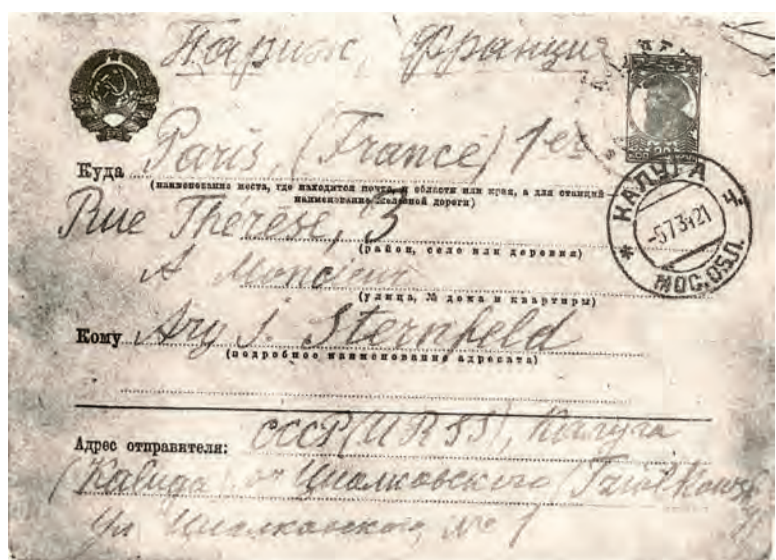 Париж, Франция
Paris (France) 1er
Куда
(наименование места, где находится почта, и области или края, а для станций
наименование железной дороги)
Rue Thérèse, 3
(район, село или деревня)
A Monsieur
(улица, № дома и квартиры)
Кому Ary J. Sternfeld
(подробное наименование адресата)
Адрес отправителя: СССР (URSS), Калуга
Kaluga от Циолковского (Tziolkowsky
Ул Циолковского, № 1
КАЛУГА
-573421
Ч.
МОС.ОБЛ.